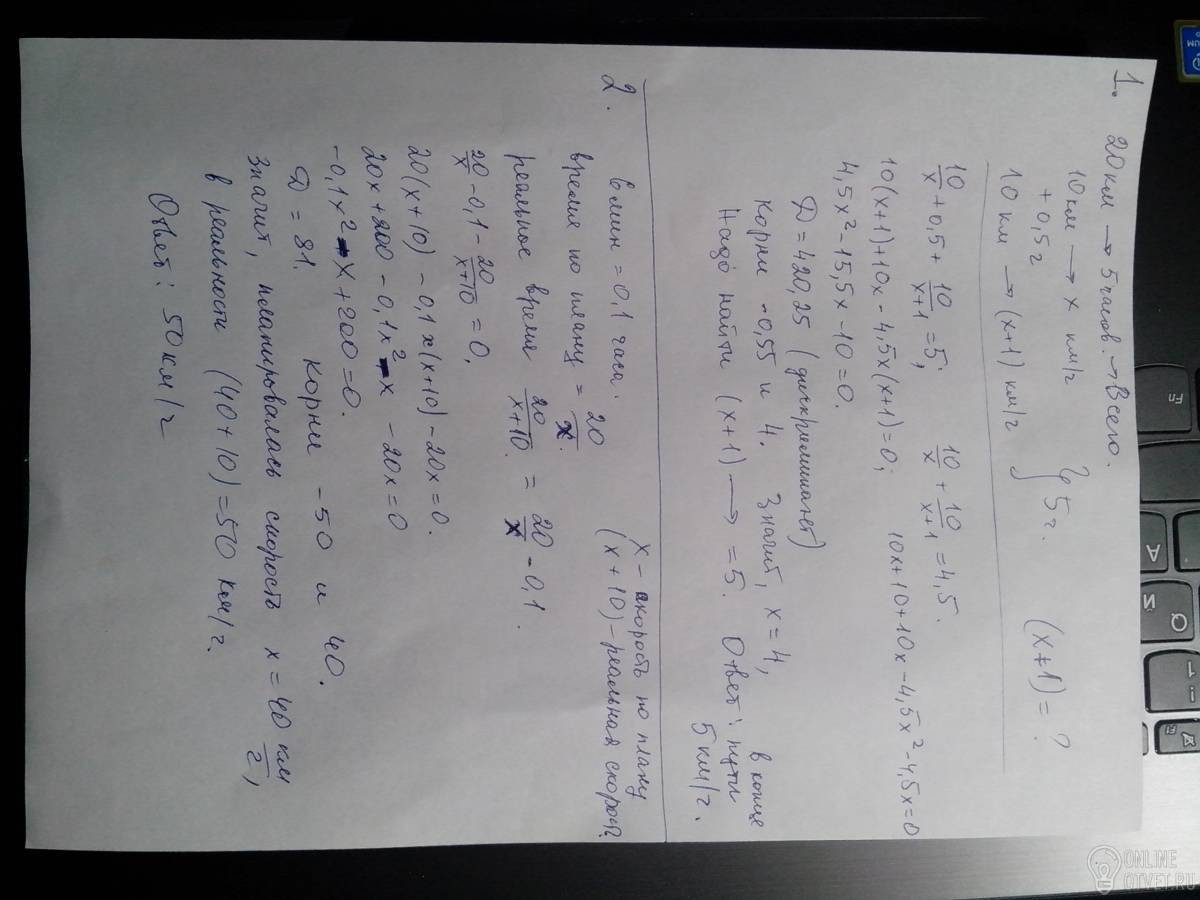 1. 20 км → 5 часов. → Всего.
10 км → x км/ч
+ 0,5 ч
10 км → (x+1) км/ч } 5 ч. (x+1) = ?
10/x + 0,5 + 10/x+1 = 5; 10/x + 10/x+1 = 4,5.
10(x+1)+10x - 4,5x(x+1)=0; 10x+10+10x-4,5x²-4,5x=0
4,5x²-15,5x-10=0.
Д = 420,25 (дискриминант)
Корни -0,55 и 4. Значит, x=4,
Надо найти (x+1) → =5. Ответ: в конце пути 5 км/ч.
2. 6 мин = 0,1 часа. x - скорость по плану
(x+10) - реальная скорость
время по плану = 20/x.
реальное время 20/x+10. = 20/x - 0,1.
20/x - 0,1 - 20/x+10 = 0.
20(x+10) - 0,1x(x+10) - 20x = 0.
20x+200 - 0,1x² - x - 20x = 0
-0,1x² - x + 200 = 0.
Д = 81. Корни -50 и 40.
Значит, планировалась скорость x = 40 км/ч,
в реальности (40+10)=50 км/ч.
Ответ: 50 км/ч
Fn
A
Й
Q
1 !
NUM
ONLINE
OTVET.RU